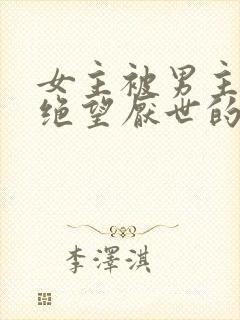 女主被男主
绝望厌世的
李澤淇